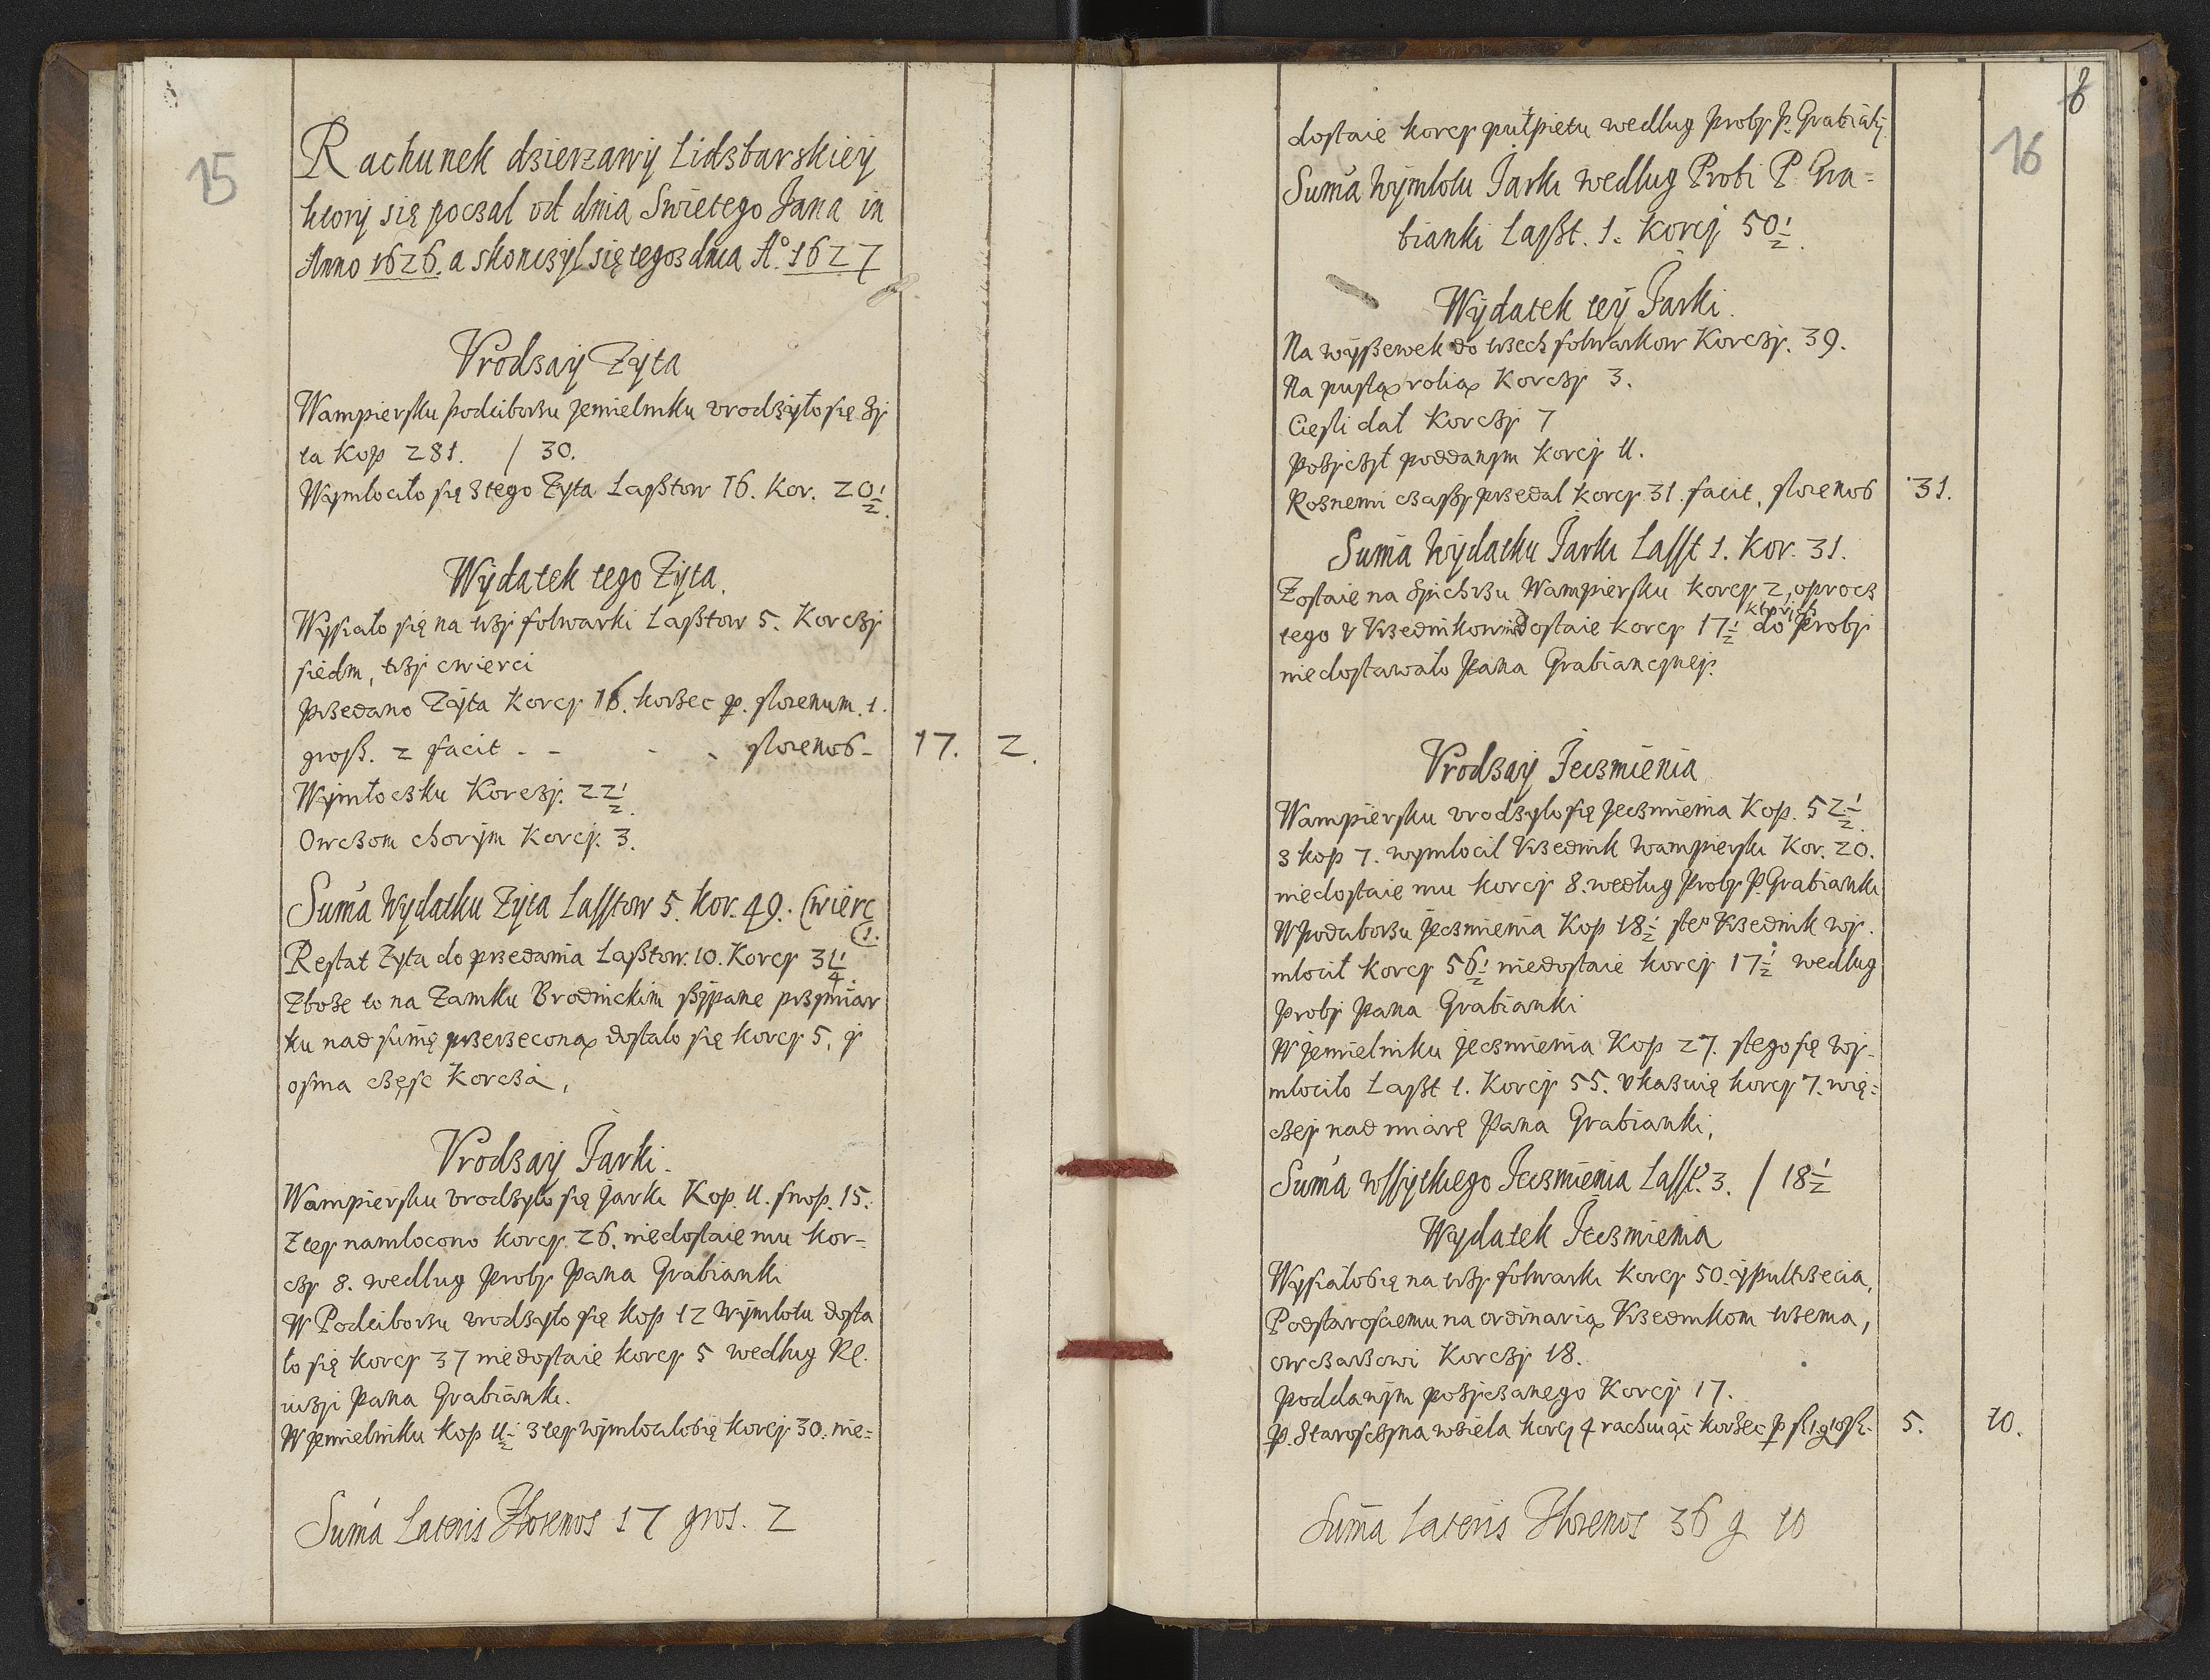 15
Rachunek dzierzawy Lidzbarskiey
ktory się poczal od dnia Swietego Jana in
Anno 1626. a skonczyl się tegoz dnia Aº. 1627
Vrodzay Zyta
Wampiersku podciborzu jemielniku vrodzyło się zy
ta Kop 281. / 30.
Wymlociło się z tego Zyta Lasztow 16. Kor. 20½.
Wydatek tego Zyta.
Wysiało się na trzy folwarki Lasztow 5. Korczy
siedm, trzy cwierci
przedano Zyta Korcy 16. korzec p. florenum. 1.
grosz. 2 facit - - - - florenos - 17. 2.
Wymłoczku Korczy. 22½.
Owczom chorym Korcy. 3.
Suma Wydatku Zyta Lasstow 5. Kor. 49. Cwierc
1.
Restat Zyta do przedania Lasztow. 10. Korcy 31¼
Zboze to na Zamku Brodnickim zsypane przy miar
ku nad sumę przerzeconą dostalo się korcy 5, y
osma częsc Korcza,
Vrodzay Jarki.
Wampiersku vrodzylo się jarki Kop. 11. snop. 15.
Z tey namlocono korcy. 26. niedostaie mu kor-
czy 8. wedlug proby Pana Grabianki
W Podciborzu vrodzyło się kop 12 wymlotu dosta
ło się korcy 37 niedostaie korcy 5 wedlug Re.
iuszi Pana Grabianki.
W jemielniku kop 11½ z tey wymlocilosię korcy 30. nie=
Suma Lateris Florenos 17 gros. 2
8
16
dostaie korcy pułpietu wedlug proby P. Grabianki
Suma wymlotu Jarki wedlug Probi P Gra=
bianki Laszt. 1. Korcy 50½.
Wydatek tey Jarki.
Na wyszewek do trzech folwarkow Korczy. 39.
Na pustą rolią Korczy 3.
Ciesli dał Korczy 7
Pozyczył poddanym korcy 11.
Roznemi czassy przedal korcy 31. facit, florenos 31.
Suma Wydatku Jarki Lasst 1. Kor. 31.
Zostaie na Spichrzu Wampiersku korcy 2, oprocz
ktorych
tego v Vrzednikow niedostaie korcy 17½ do Proby
niedostawało Pana Grabiancynej.
Vrodzay Jeczmienia
Wampiersku vrodzylo się jeczmienia Kop. 52½.
z kop 7. wymlocil Vrzednik Wampierski Kor. 20.
niedostaie mu korcy 8. według Proby P. Grabianki
W podciborzu jeczmienia Kop 18½ stego Vrzednik wy.
mlocił korcy 56½ niedostaie korcy 17½ wedlug
Proby Pana Grabianki
W jemielniku jeczmienia Kop 27. stego się wy-
mlociło Laszt 1. Korcy 55. vkazuię korcy 7. wię=
czey nad miarę Pana Grabianki,
Suma wssytkiego Jeczmienia Lasst. 3. / 18½
Wydatek Jeczmienia
Wysiałosię na trzy folwarki korcy 50. ypultrzecia,
Podstarosciemu na ordinarią Vrzednikom trzema,
owczarzowi Korczy 18.
Poddanym pozyczanego Korcy 17.
P. Staroscyna wzieła korcy 4 rachuiąc korzec p fl 1. g 10 fl. 5. 10.
Suma Lateris Florenos 36 g 10